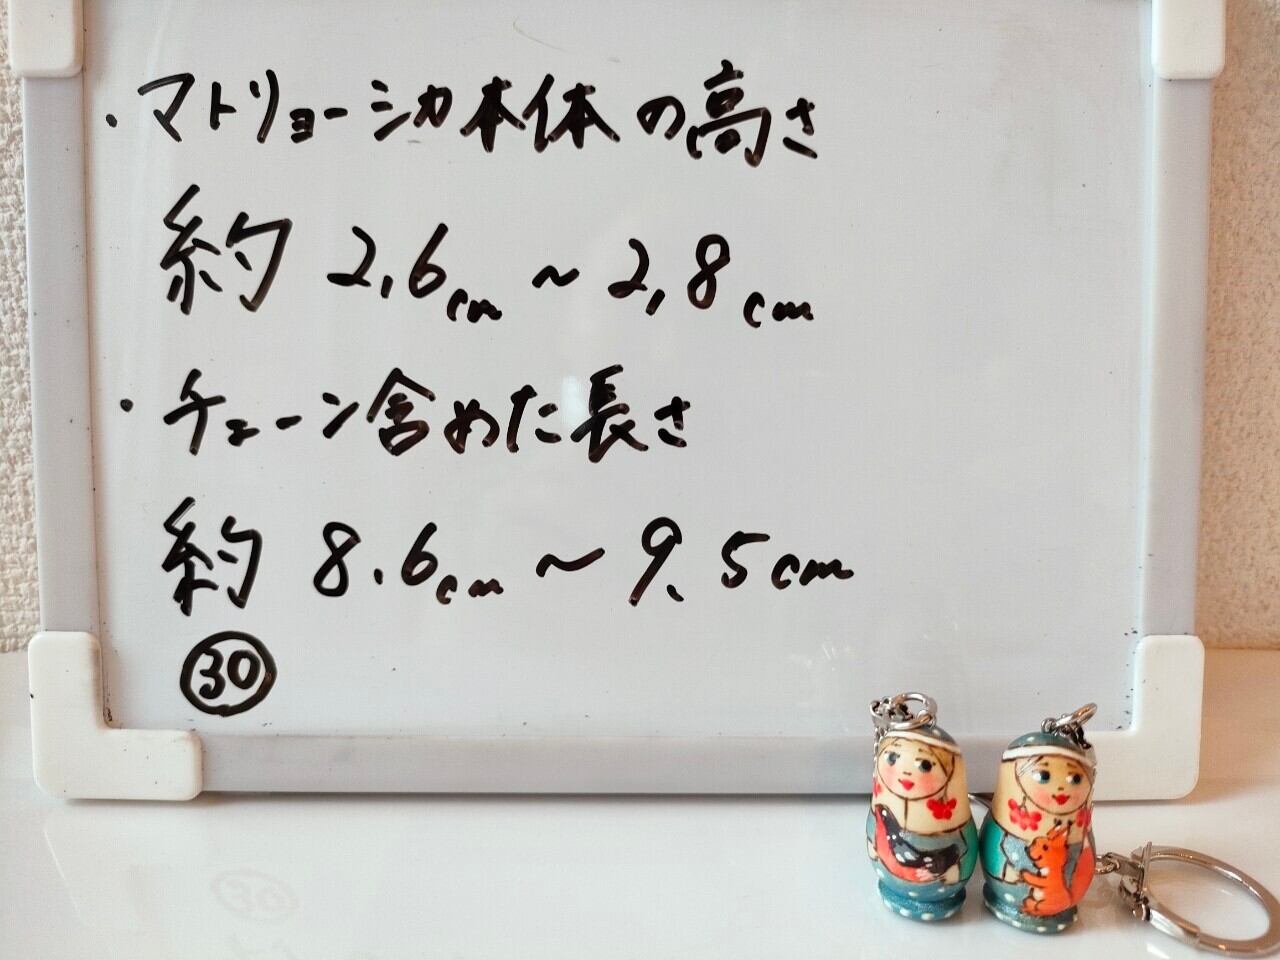 ・マトリョーシカ本体の高さ
約 2.6cm ～ 2.8cm
・チェーン含めた長さ
約 8.6cm ～ 9.5cm
㉚